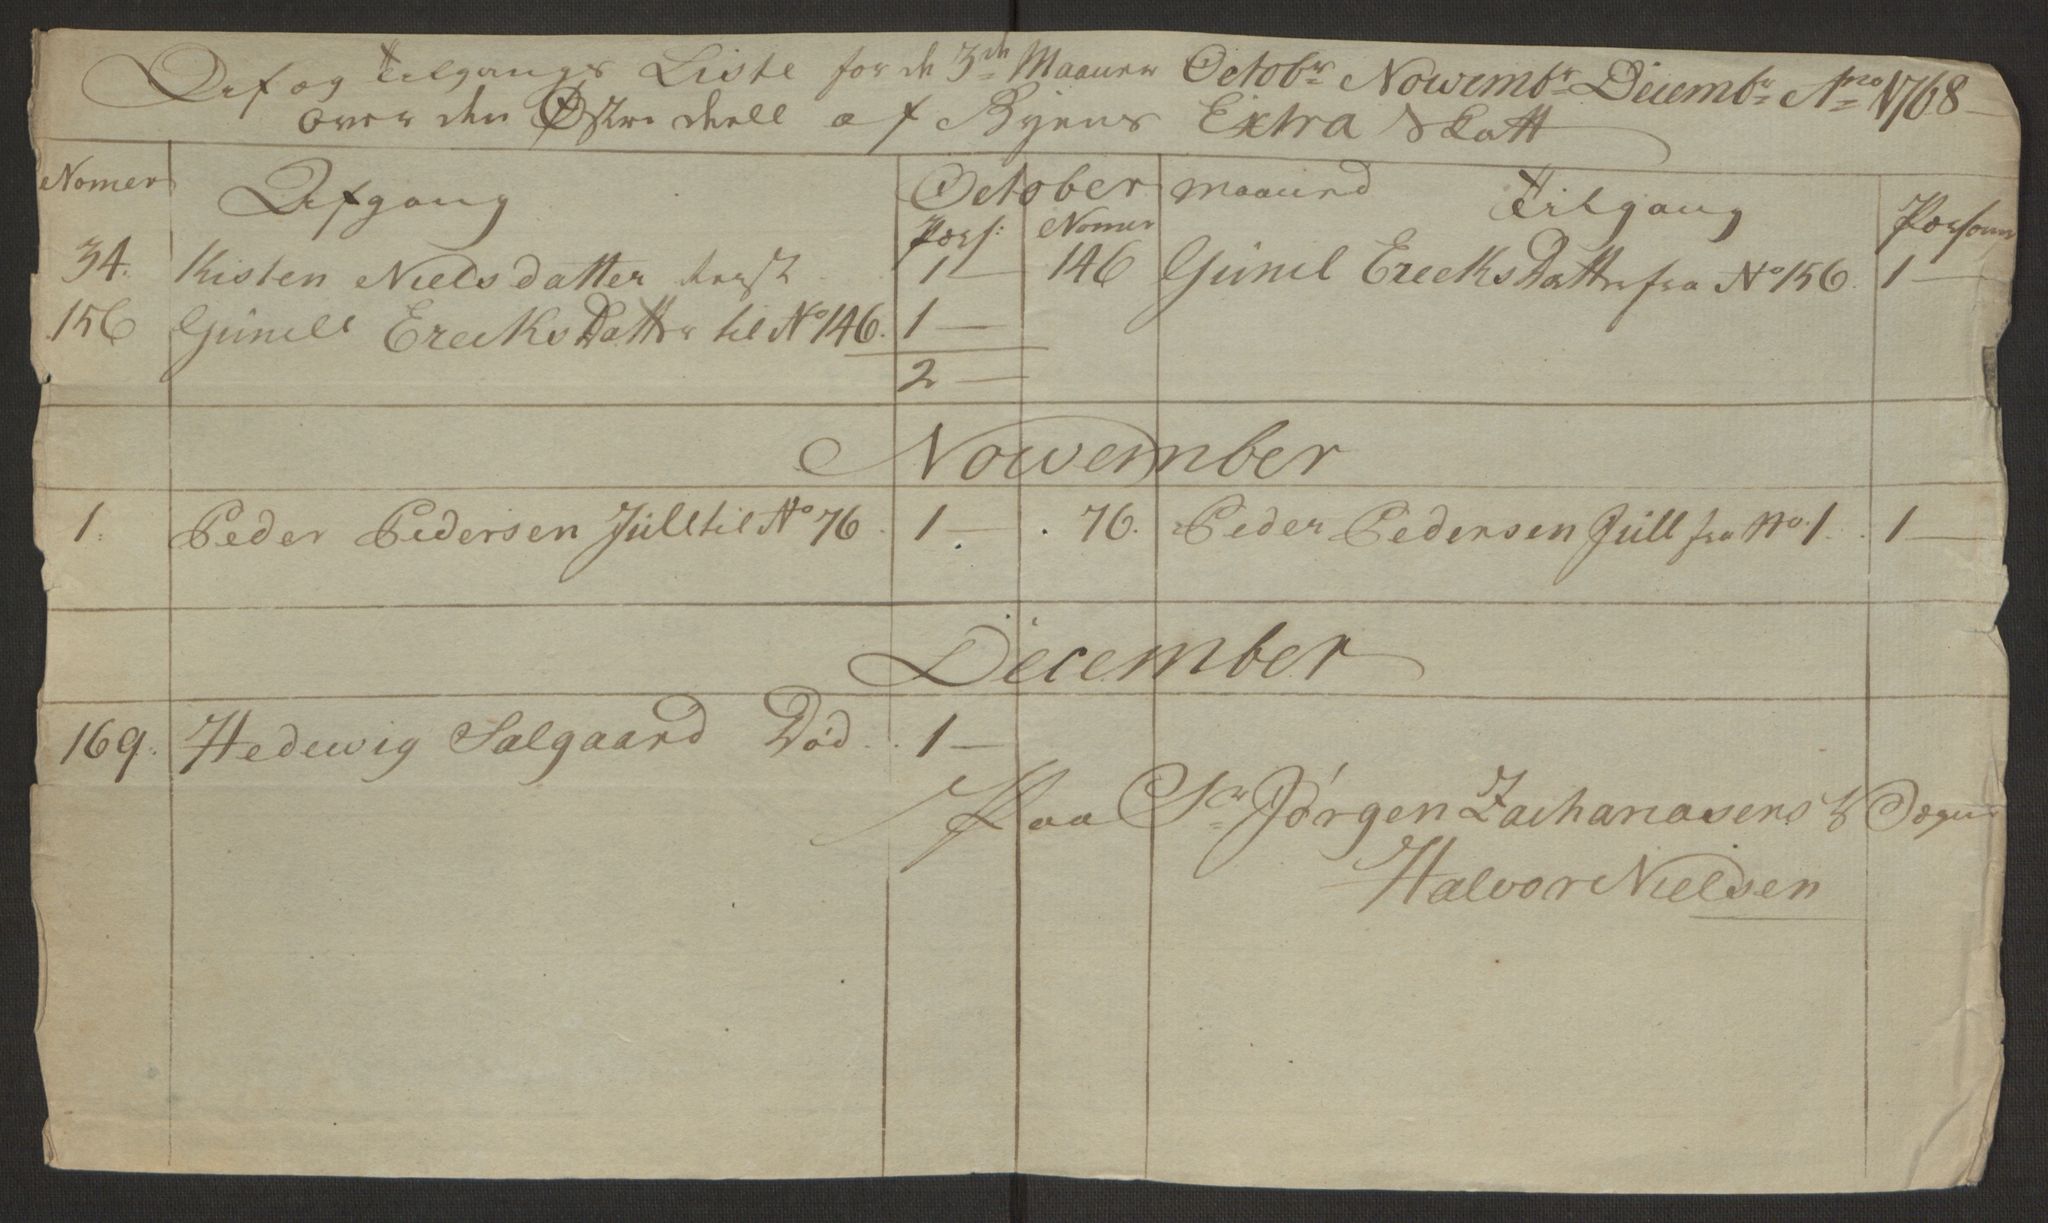 Af og Tilgangs Liste for de 3de Maaner Octobr Nowembr Decembr Ano 1768
over den Østre deell af Byens Extra Skatt
Nomer Afgang October maaned Tilgang Personer
Pers: Nomer
34. Kisten Nielsdatter 1 — 146 Gunil Erecks Datter fra No 156. 1 —
156 Gunill Erecks Datter til No 146. 1 —
2 —
Nowember
1. Peder Pedersen Jüll til No 76. 1 — 76. Peder Pedersen Jüll fra No. 1. 1 —
December
169. Hedewig Salgaard Død. 1 —
Paa Sr Jørgen Zachariasens
Halvor Nielsen